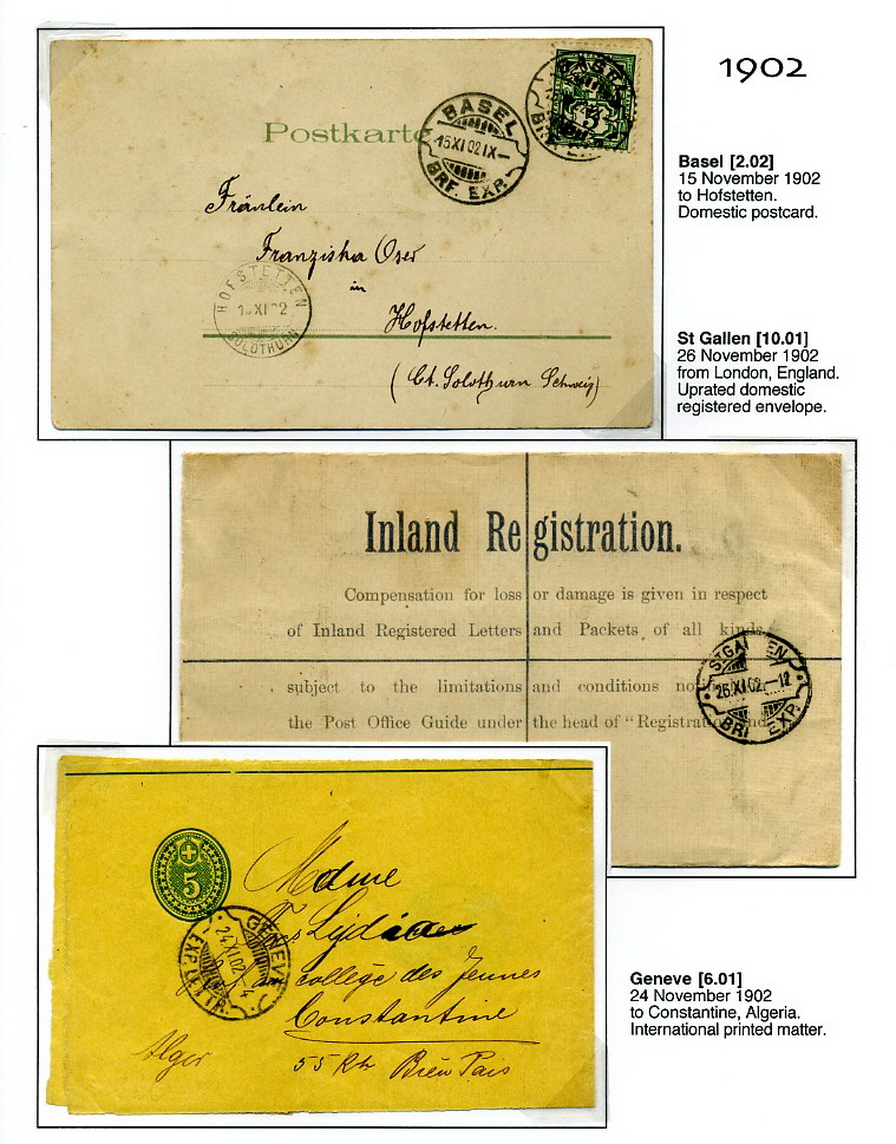 1902
Postkarte
BASEL
15 XI 02 IX—
BRF. EXP.
BASEL
BRF. EXP.
5
Basel [2.02]
15 November 1902
to Hofstetten.
Domestic postcard.
Fräulein
Franziska Oser
in
Hofstetten.
(Ct. Solothurn Schweiz)
HOFSTETTEN
XI 02
SOLOTHURN
St Gallen [10.01]
26 November 1902
from London, England.
Uprated domestic
registered envelope.
Inland Registration.
Compensation for loss or damage is given in respect
of Inland Registered Letters and Packets of all kinds,
subject to the limitations and conditions
the Post Office Guide under the head of "Registration and
ST GALLEN
26.XI.02.—12
BRF. EXP.
5
Mdme
Lydia
collège des Jeunes
Constantine
Alger
55 Rh Bien Pais
GENEVE
24 XI.02.—4
EXP. LETTR.
Geneve [6.01]
24 November 1902
to Constantine, Algeria.
International printed matter.